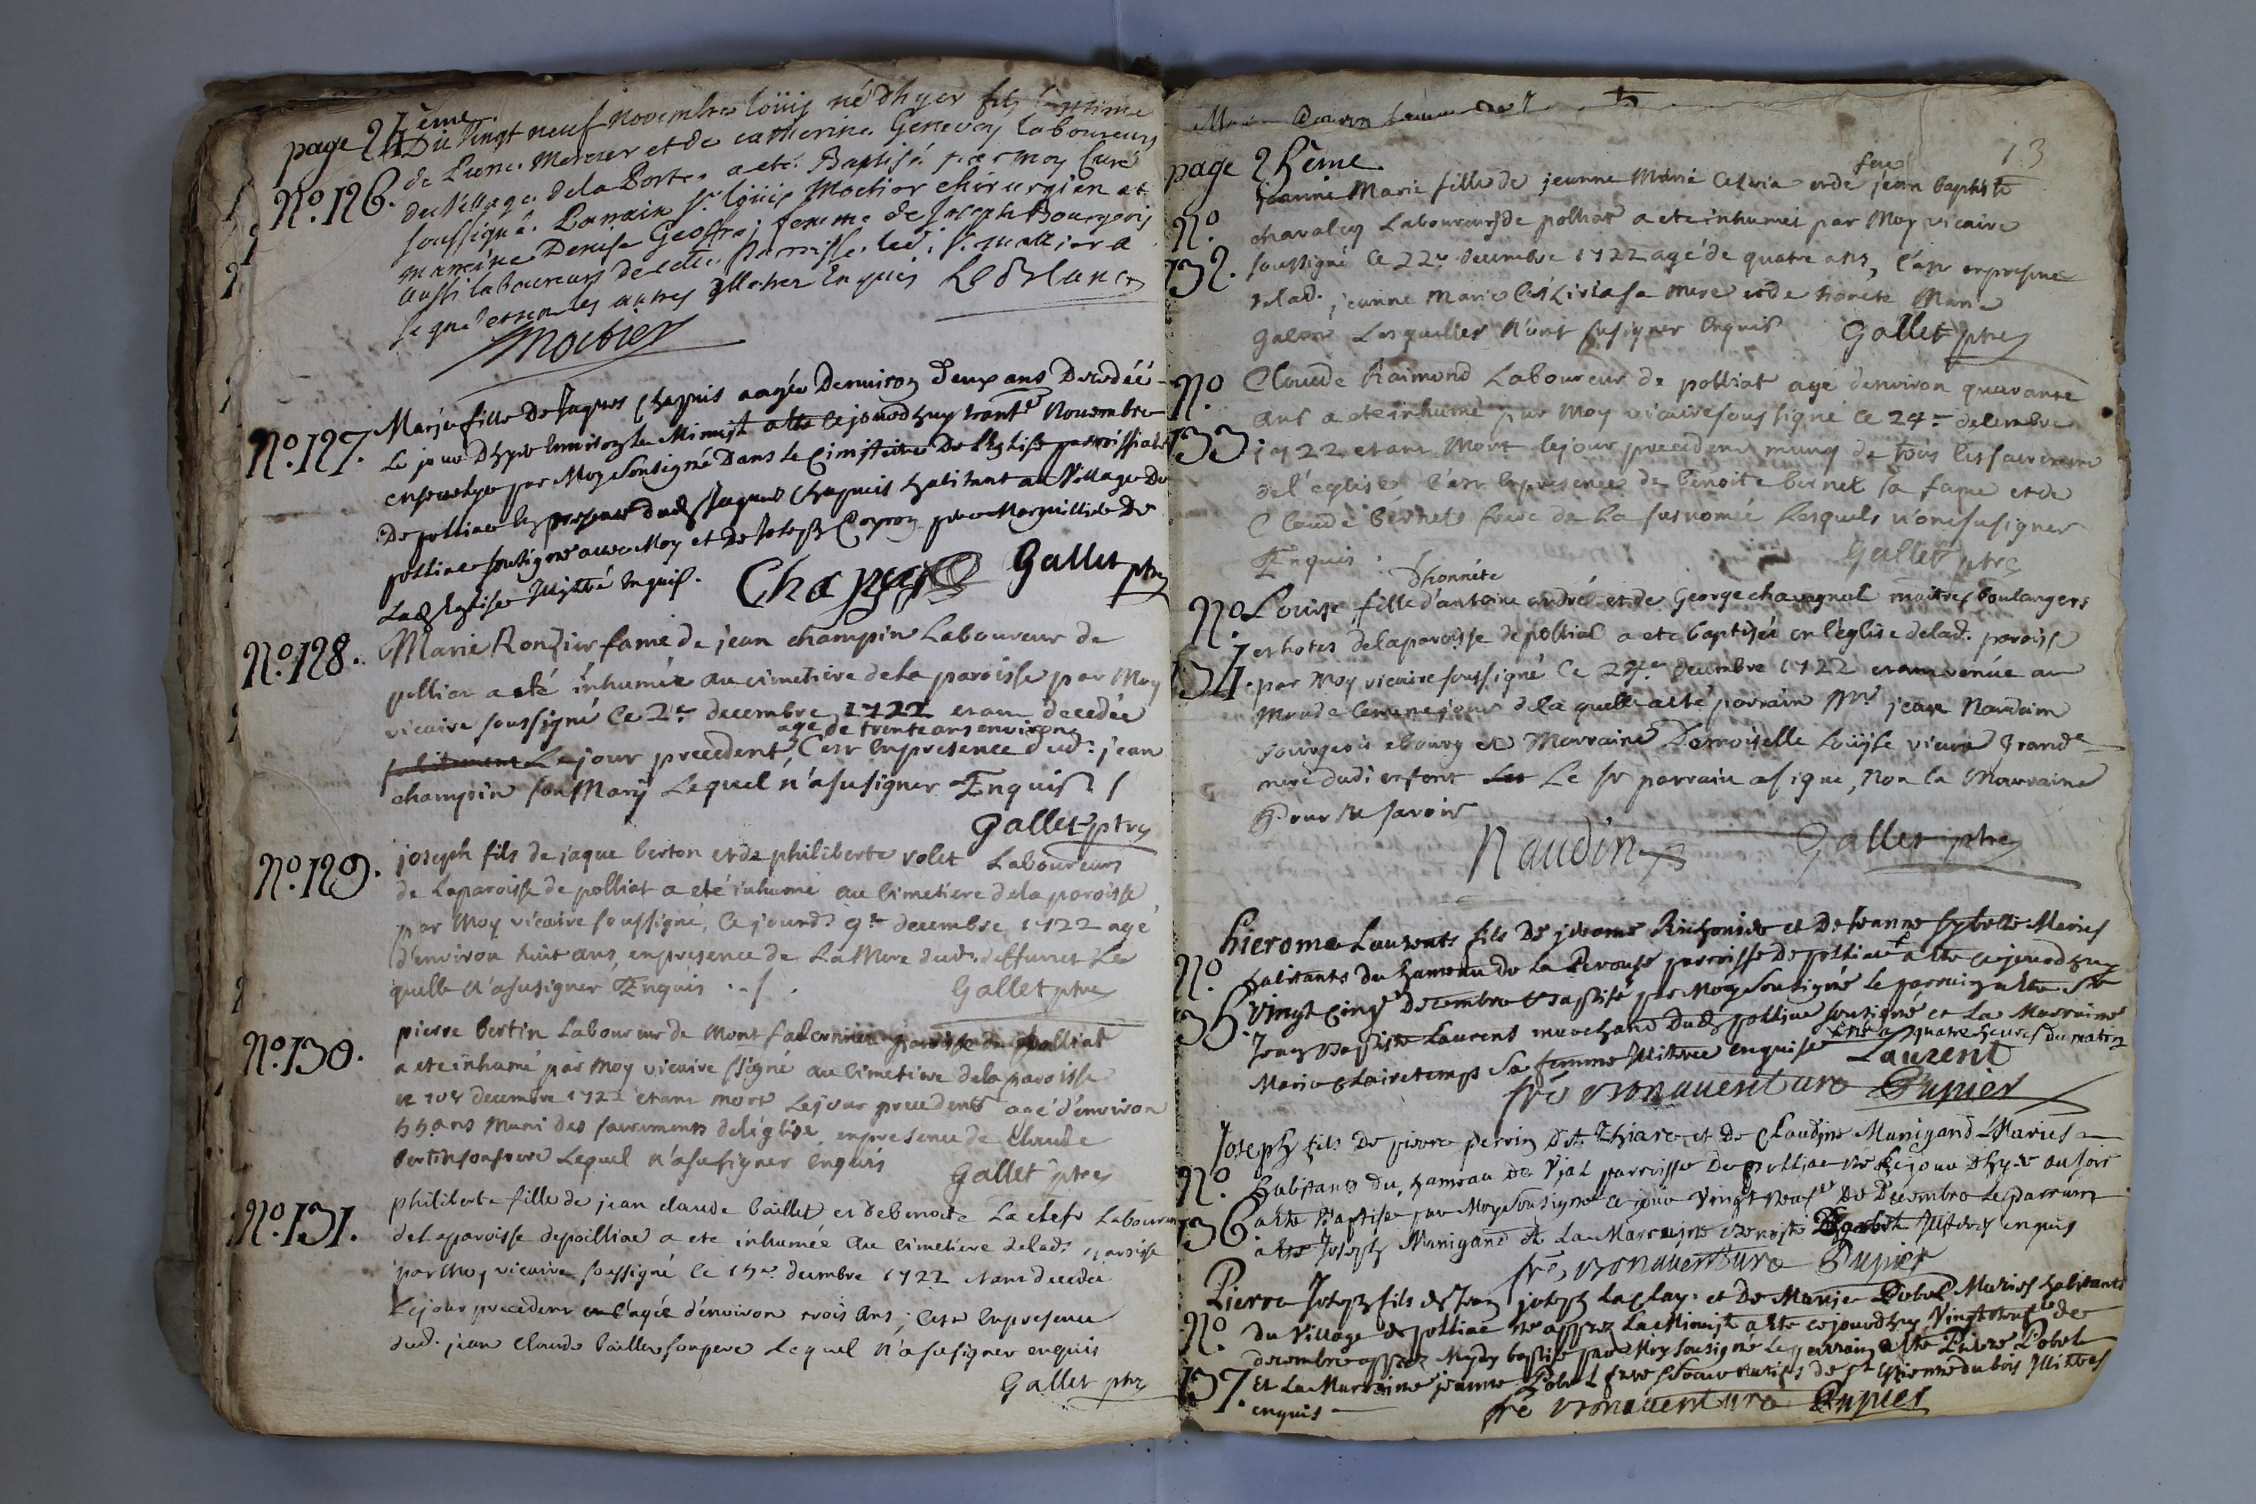 page 24ème
Du vingt neuf novembre loüis né dhyer fils legitime
N.º 126. de Mercier et de catherine Genevay laboureurs
du village de la Porte a eté Baptisé par moy Curé
soussigné. Parrain Sr loüis Moctier chirurgien et
marraine Denise Geoffraj femme de Joseph Bourgeois
aussi laboureurs de cette Parroisse. led. Sr. moctier a
signé et non les autres illetrez Enquis LeBlanc
Moctier
N.º 127. Marie fille De Jaques Chapuis aagée Denviron deux ans Decedée
Le jour Dhyer environ la Minuit a ete cejourdhuy trante Novembre
ensevelye par Moy Soussigné Dans le Cimetiere De l'Eglise parroissiale
De polliac en presence dud. Jaques Chapuis habitant au Village De
polliac soussigné avec Moy et De Joseph Marguillier De
Lad. Eglise Illitré enquis. Chapuis Gallet ptre
N.º 128. Marie Ronzier fame de jean champin Laboureur de
polliat a eté inhumée au cimetiere de la paroisse par Moy
vicaire soussigné Ce 2e decembre 1722 etant decedée
agé de trente ans environ
subitement Le jour precedent C'est Enpresence dud. jean
champin son Mary Lequel n'a su signer Enquis
Gallet ptre
N.º 129. joseph fils de jaque berton et de philiberte volet Laboureurs
de Laparoisse de polliat a eté inhumé au Cimetiere de la paroisse
par Moy vicaire soussigné, Ce jourd. 9e decembre 1722 agé
d'environ huit ans, en presence de La Mere dud. deffunct La
quelle n'a su signer Enquis
Gallet ptre
N.º 130. pierre bertin Laboureur de Mont paroisse de polliat
a eté inhumé par moy vicaire ssigné au Cimetiere de la paroisse
ce decembre 1722 etant mort Le jour precedent agé d'environ
55 ans Muni des sacrements de l'église en presence de Claude
bertin son frere Lequel n'a su signer enquis
Gallet ptre
N.º 131. philiberte fille de jean claude baillet et de benoite La clef Laboureurs
de Laparoisse de poilliat a eté inhumée au Cimetiere de lad. paroisse
par Moy vicaire soussigné le 15e. decembre 1722 etant decedée
Le jour precedent agée d'environ trois ans; C'est En presence
dud. jean claude baillet son pere Lequel n'a su signer enquis
Gallet ptre
13
page 25ème
feu
jeanne Marie fille de jeanne Marie et de jean baptiste
N.º chavaley Laboureurs de polliat a eté inhumée par Moy vicaire
132. soussigné Ce 22e decembre 1722 agé de quatre ans, C'est en presence
delad. jeanne Marie sa mere et de honete Marie
Lesquelles n'ont su signer Enquis Gallet ptre
N.º Claude Raimond Laboureur de polliat agé d'environ quarante
ans a eté inhumé par Moy vicaire soussigné Ce 24e decembre
133 1722 etant Mort le jour precedent muny de tous les sacrements
de l'eglise, C'est En presence de benoite bernet sa fame et de
Claude bernet frere de La surnomée Lesquels n'ont su signer
Enquis. Gallet ptre
d'honnéte
N.º Louise fille d'antoine andré et de George chavagnol maitres boulangers
et hotes de la paroisse de polliat a eté baptisée en l'église de lad. paroisse
134. par Moy vicaire soussigné Ce decembre 1722 etant venüe au
Monde Ce meme jour de la quelle a eté parrain Mr. jean Naudin
bourgeois a bourg et Marraine Demoiselle Loüise viena grande
mere dudi enfant Le Sr parrain a signe, Non la Marraine
Pour Ne savoir
Naudin Gallet ptre
Hierome Laurents fils De jerome et De Jeanne Maries
N.º habitants du hameau de la Perouse parroisse De polliac a ete cejourdhuy
135. Vingt Cinq Decembre Baptisé par Moy Soussigné Le parrain a ete Sr
Jean Baptiste Laurent marchand dud. polliac soussigné et La Marraine
Marie Clairetemps Sa femme Illitree enquise né a quatre heures du matin
Laurent
fre Bonaventure Pupier
Joseph fils De pierre perrin dit Thiare et De Claudine Manigand Maries
N.º habitants du hameau de Vial parroisse De polliac né Le jour Dhyer au soir
136 a ete Baptisé par Moy Soussigné ce jour Vingt neuf De Decembre Le parrain
a ete Joseph Manigand et La Marraine Benoiste Illitres enquis
fre Bonaventure Pupier
Pierre Joseph fils de Jean joseph La Clay et De Marie Pobel Maries habitants
N.º du Village de polliac né apprez La Minuit a ete cejourdhuy Vingt neuf de
decembre apprez Mydy baptisé par Moy Soussigné Le parrain a ete Pierre Pobel
137. Et La Marraine jeanne Pobel frere et soeur de St Estienne du bois Illitres
enquis fre Bonaventure Pupier